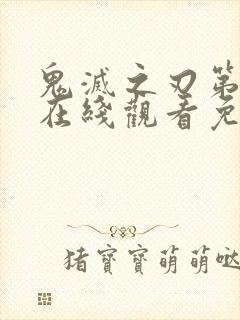 鬼滅之刃第
在綫觀看免
猪寶寶萌萌噠